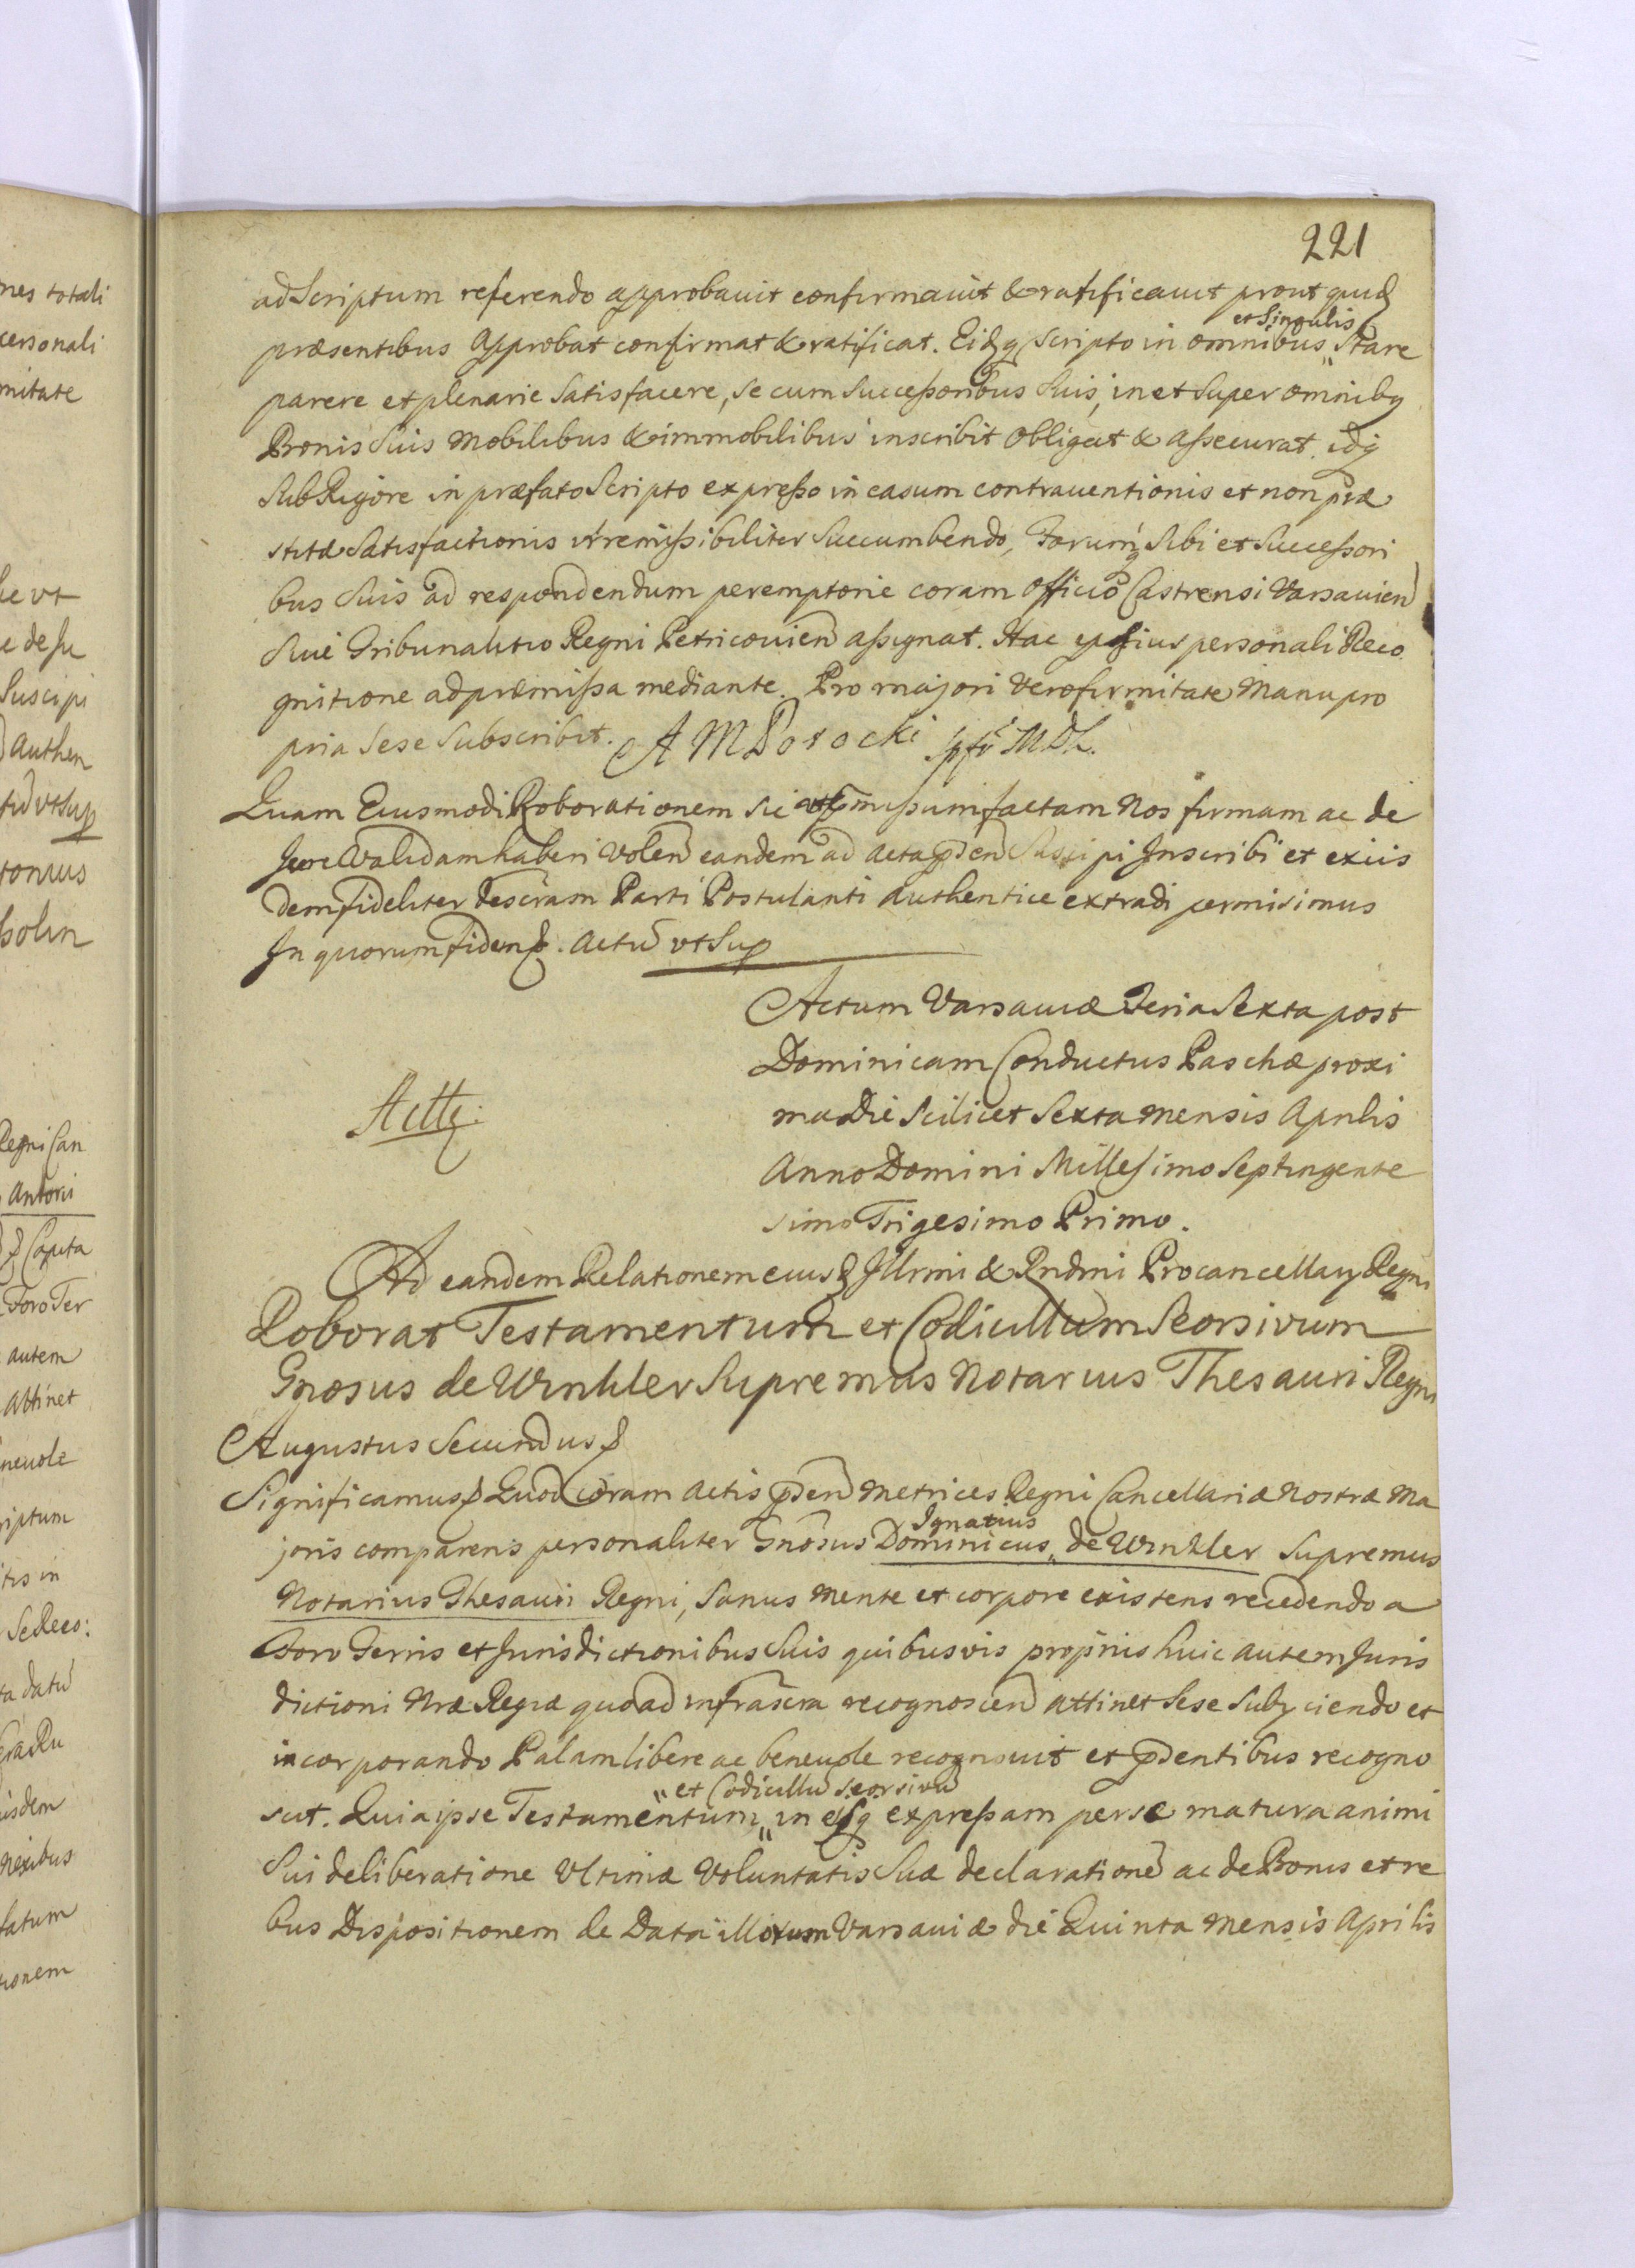 221
ad Scriptum referendo approbavit confirmavit & ratificavit prout quidem
præsentibus Approbat confirmat & ratificat. Eidq Scripto in omnibus et Singulis Stare
parere et plenarie Satisfacere, se cum Successoribus Suis, in et Super omnibq
Bonis Suis Mobilibus & immobilibus inscribit Obligat & Assecurat. idq
Sub Rigore in præfato Scripto expresso in casum contraventionis et non præ
stitæ Satisfactionis irremissibiliter Succumbendo, Forumq Sibi et Successori
bus Suis ad respondendum peremptorie coram Officio Castrensi Varsavien
Sive Tribunalitio Regni Petricovien assignat. Hac ipsius personali Reco
gnitione ad præmissa mediante. Pro majori vero firmitate Manu pro
pria Sese Subscribit. A M Potocki
Quam Eiusmodi Roborationem sic factam Nos firmam ac de
Jure Validam haberi volen eandem ad Acta pden Suscipi Inscribi et exiis
dem fideliter descriam Parti Postulanti Authentice extradi permisimus
In quorum fidem. Actu ut Sup
Actum Varsaviæ Feria Sexta post
Dominicam Conductus Paschæ proxi
ma Die Scilicet Sexta Mensis Aprilis
Anno Domini Millesimo Septingente
simo Trigesimo Primo.
Ad eandem Relationem eius Illrmi & Rndmi Procancellarij Regni
Roborat Testamentum et Codicillum Seorsivum
Gnosus de Winkler Supremus Notarius Thesauri Regni
Augustus Secundus
Significamus Quod coram Actis pden Metrices Regni Cancellariæ Nostræ Ma
joris comparens personaliter Gnosus Dominicus Ignatius de Winkler Supremus
Notarius Thesauri Regni, Sanus mente et corpore existens recedendo a
Foro Terris et Jurisdictionibus Suis quibusvis proprijs huic autem Juris
dictioni Nræ Regiæ quoad infrascra recognoscen attinet Sese Subijciendo et
incorporando Palam libere ac benevole recognovit et pdentibus recogno
scit. Quia ipse Testamentum et Codicillu Seorsivu in eisq expressam per se matura animi
Sui deliberatione Ultimæ Voluntatis Suæ declaratione ac de Bonis et re
bus Dispositionem de Data illorum Varsaviæ die Quinta Mensis Aprilis